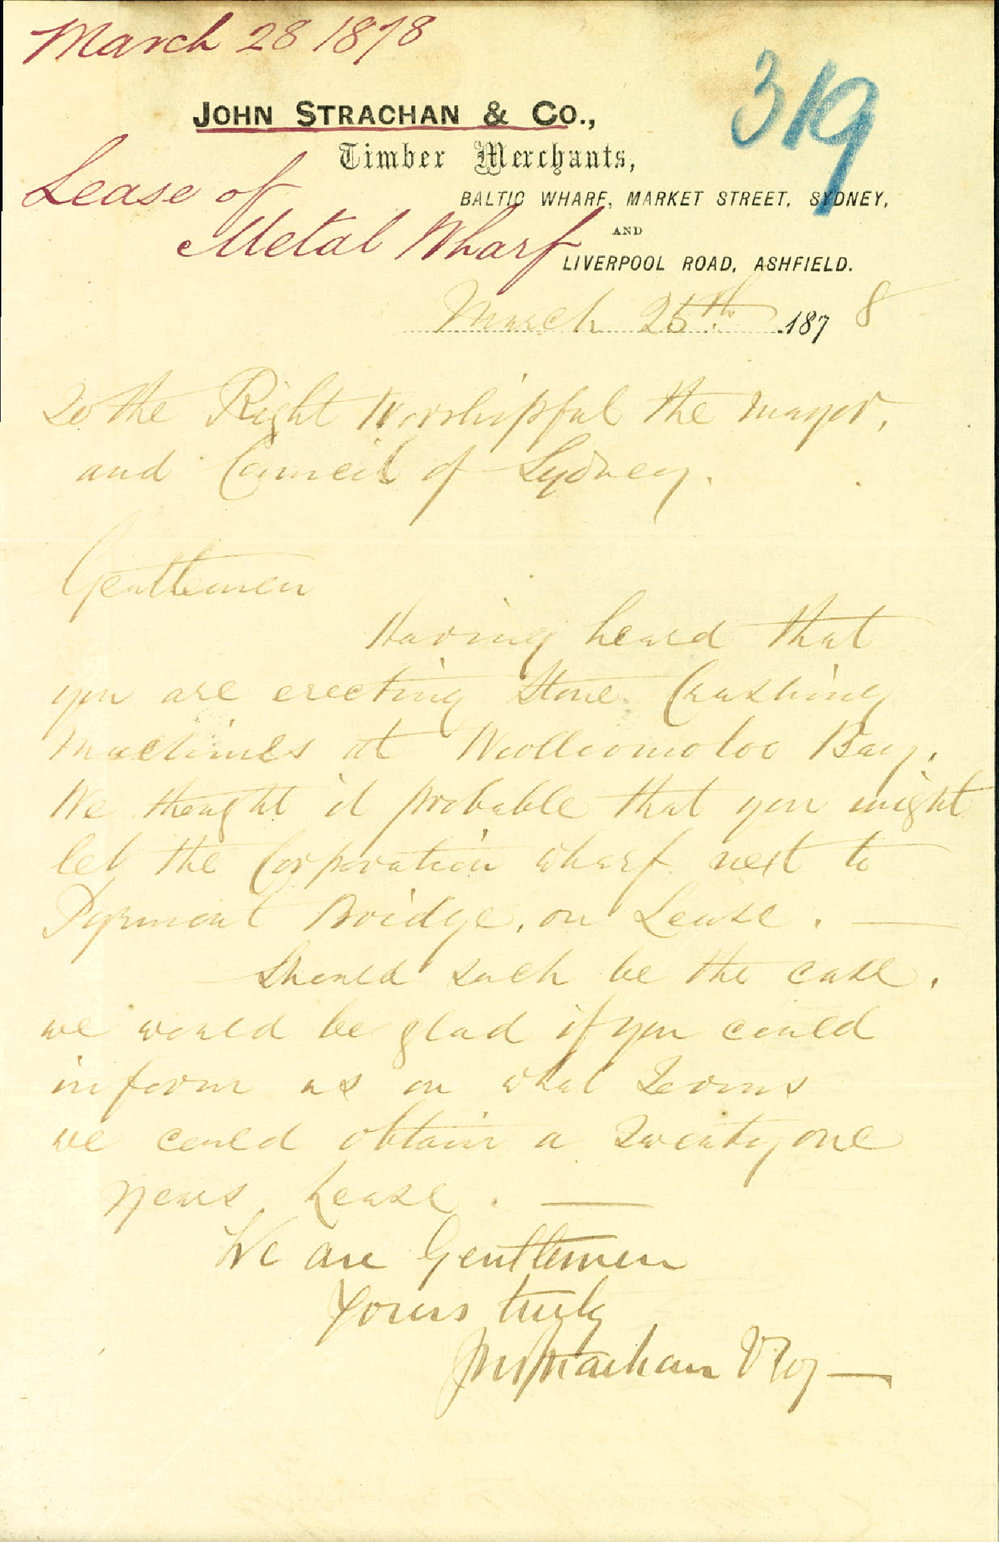 March 28 1878
319
JOHN STRACHAN & CO.,
Timber Merchants,
BALTIC WHARF, MARKET STREET, SYDNEY,
AND
LIVERPOOL ROAD, ASHFIELD.
Lease of
Metal Wharf
March 25th 1878
To the Right Worshipful the Mayor,
and Council of Sydney.
Gentlemen
Having heard that
you are erecting Stone Crushing
Machines at Woolloomoloo Bay.
We thought it probable that you might
let the Corporation wharf next to
Pyrmont Bridge, on Lease. —
Should such be the case,
we would be glad if you could
inform us on what Terms
we could obtain a Twenty one
years Lease. —
We are Gentlemen
Yours truly
Jno Strachan & Co —